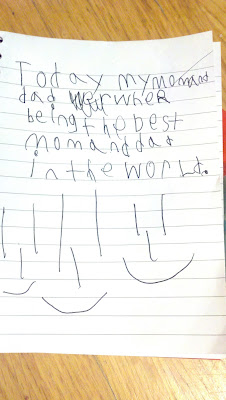 Today my mom and
dad wer wher
being the best
mom and dad
in the world.